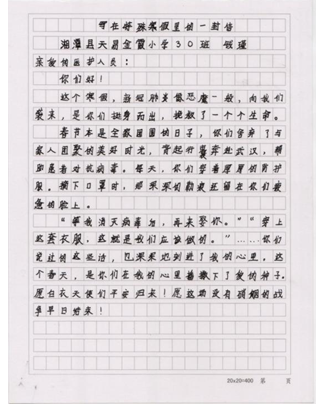 写在特殊寒假里的一封信
湘潭县天易金霞小学30班
亲爱的医护人员：
你们好！
这个寒假，当冠肺炎像恶魔一般，向我们
袭来，是你们挺身而出，挽救了一个个生命。
春节本是全家团圆的日子，你们舍弃了与
家人团聚的美好时光，背起行囊奔赴武汉，
患者对抗病毒。每天，你们穿着厚厚的防护
服。摘下口罩时，那深深的勒痕还留在你们疲
惫的脸上。
“等我消灭病毒后，再来娶你。”“穿上
这套衣服，这就是我们应该做的。”……你们
说过的这些话，已深深地刻进了我的心里。这
个春天，是你们在我的心里播下了爱的种子。
愿白衣天使们平安归来！愿这场没有硝烟的战
争早日结束！
20×20=400 第 页